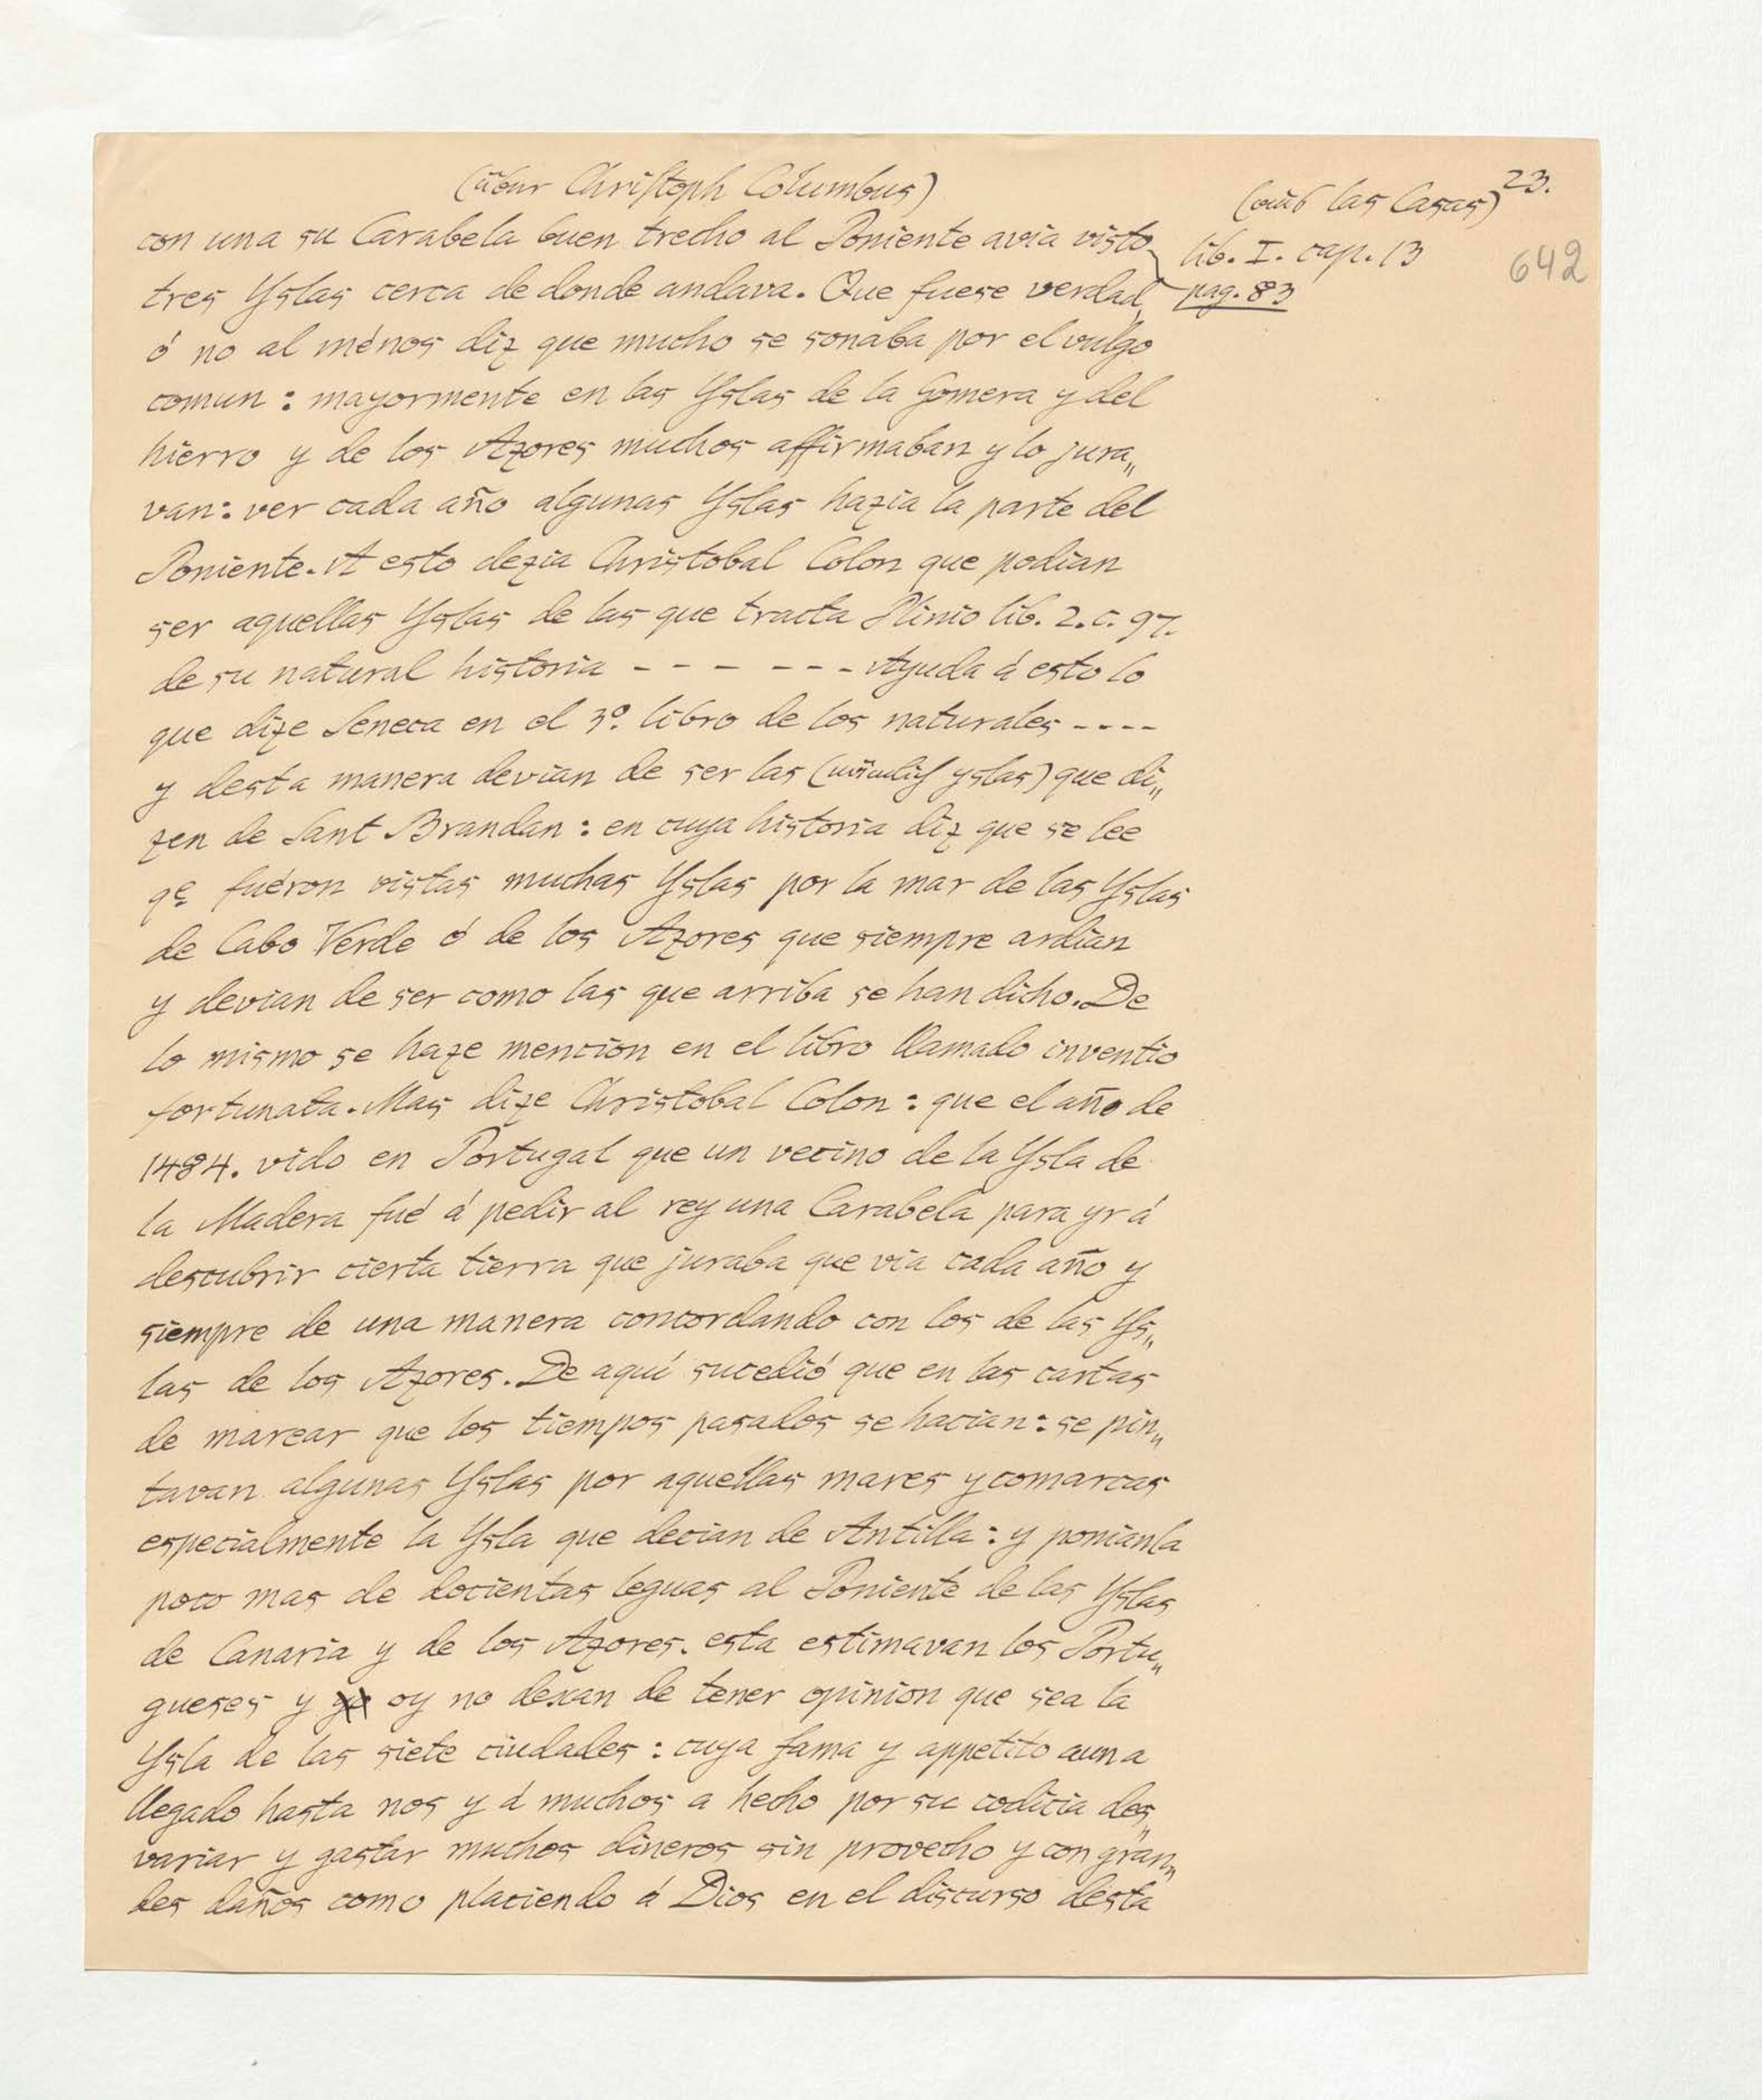 (über Christoph Columbus)
(aus las Casas) 23.
642
lib. I. cap. 13
pag. 83
con una su Carabela buen trecho al Poniente avia visto
tres Yslas cerca de donde andava. Que fuese verdad
ó no al ménos diz que mucho se sonaba por el vulgo
comun : mayormente en las Yslas de la Gomera y del
hierro y de los Azores muchos affirmaban y lo jura„
van : ver cada año algunas Yslas hazia la parte del
Poniente. A esto dezia Christobal Colon que podian
ser aquellas Yslas de las que tracta Plinio lib. 2. c. 97.
de su natural historia - - - - - - - Ayuda á esto lo
que dize Seneca en el 3º. libro de los naturales - - - -
y desta manera devian de ser las (nämlich yslas) que di„
zen de Sant Brandan : en cuya historia diz que se lee
qe fuéron vistas muchas Yslas por la mar de las Yslas
de Cabo Verde ó de los Azores que siempre ardian
y devian de ser como las que arriba se han dicho. De
lo mismo se haze mencion en el libro llamado inventio
fortunata. Mas dize Christobal Colon : que el año de
1484. vido en Portugal que un vecino de la Ysla de
la Madera fué á pedir al rey una Carabela para yr á
descubrir cierta tierra que juraba que via cada año y
siempre de una manera concordando con los de las Ys„
las de los Azores. De aquí sucedió que en las cartas
de marear que los tiempos pasados se hacian : se pin„
tavan algunas Yslas por aquellas mares y comarcas
especialmente la Ysla que decian de Antilla : y ponianla
poco mas de docientas leguas al Poniente de las Yslas
de Canaria y de los Azores. esta estimavan los Portu„
gueses y oy no dexan de tener opinion que sea la
Ysla de las siete ciudades : cuya fama y appetito aun a
llegado hasta nos y á muchos a hecho por su codicia des„
variar y gastar muchos dineros sin provecho y con gran„
des daños como placiendo á Dios en el discurso desta